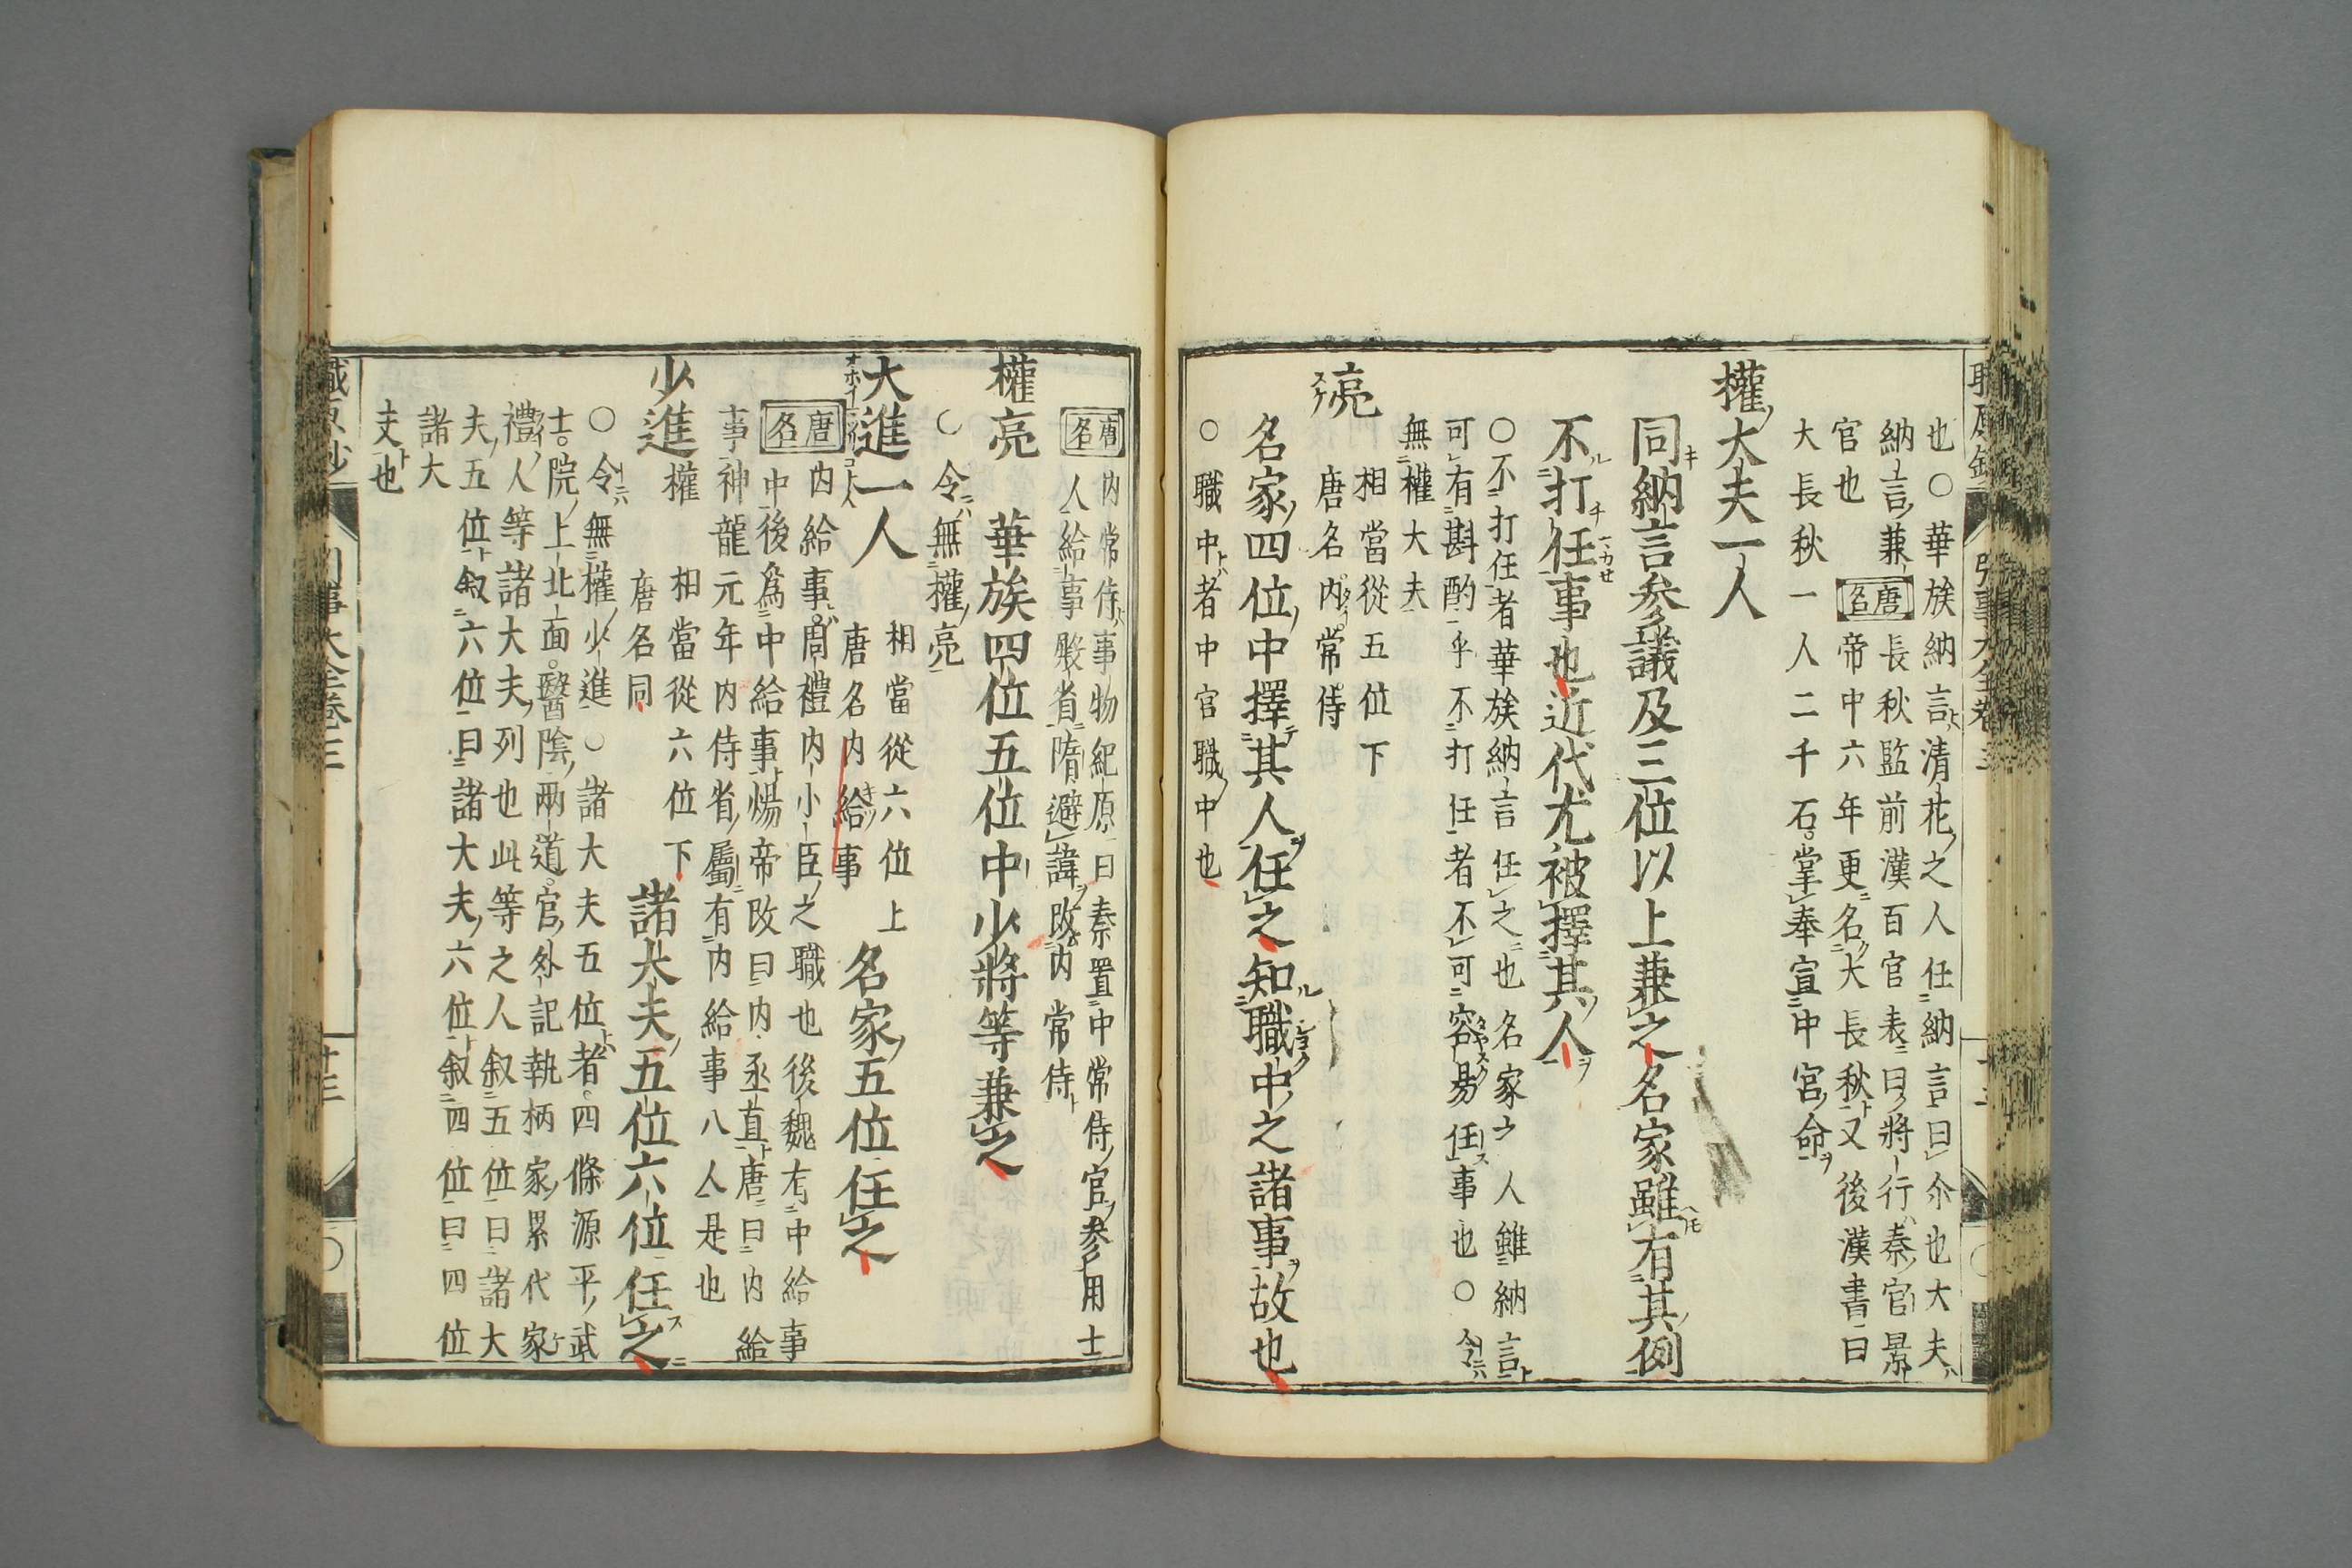 也○華族納言清花之人任納言曰尒也大夫
納言兼唐名長秋監前漢百官表曰將行秦官景
官也帝中六年更名大長秋又後漢書曰
大長秋一人二千石掌奉宣中宮命
權大夫一人
同納言参議及三位以上兼之名家雖有其例
不打任事也近代尤被擇其人
○不打任者華族納言任之也名家之人雖納言
可有斟酌乎不打任者不可容易任事也○令
無權大夫
亮
相當從五位下
唐名内常侍
名家四位中擇其人任之知職中之諸事故也
○職中者中官職中也
唐名
内常侍事物紀原曰秦置中常侍官參用士
人給事殿省隋避諱改内常侍
權亮 華族四位五位中少將等兼之
○令無權亮
大進一人
相當從六位上
唐名内給事
名家五位任之
唐名
内給事周禮内小臣之職也後魏有中給事
中後為中給事煬帝改曰内丞直唐曰内給
事神龍元年内侍省屬有内給事八人是也
少進 權
相當從六位下
唐名同
諸大夫五位六位任之
○令無權少進○諸大夫五位者四條源平武
士院上北面醫陰兩道官外記執柄家累代家
禮人等諸大夫列也此等之人叙五位曰諸大
夫五位叙六位曰諸大夫六位叙四位曰四位
諸大
丈也
十三